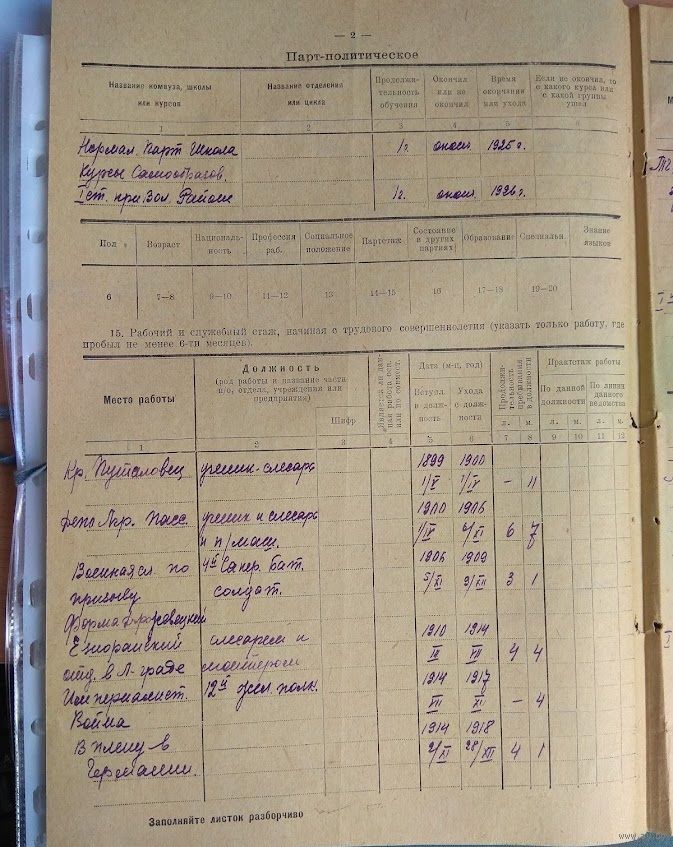 — 2 —
Парт-политическое
Название комвуза, школы или курсов | Название отделения или цикла | Продолжи-тельность обучения | Окончил или не окончил | Время окончания или ухода | Если не окончил, то с какого курса или с какой группы ушел
1 | 2 | 3 | 4 | 5
Нормал. Парт Школа | 1 г. | окон | 1925 г.
Курсы Самообразов.
I ст. при. Вол. Районе | 1 г. | окон. | 1926 г.
Пол | Возраст | Националь-ность | Профессия раб. | Социальное положение | Партстаж | Состояние в других партиях | Образование | Специальн. | Знание языков
6 | 7—8 | 9—10 | 11—12 | 13 | 14—15 | 16 | 17—18 | 19—20
15. Рабочий и служебный стаж, начиная с трудового совершеннолетия (указать только работу, где
пробыл не менее 6-ти месяцев).
Место работы | Должность (род работы и название части п/о, отдела, учреждения или предприятия) | Шифр | Дата (м-ц, год) | Вступл. в долж-ность | Ухода с долж-ности | Продолжи-тельность пребывания в должности | Практстаж работы | По данной должности | По линии данного ведомства
л. | м. | л. | м. | л. | м.
1 | 2 | 3 | 4 | 5 | 6 | 7 | 8 | 9 | 10 | 11 | 12
1899 | 1900
Кр. Путиловец | ученик-слесарь | 1/V | 1/IV | – | 11
1900 | 1906
Депо Пасс. | ученик и слесарь
и п/маш. | 1/IV | 6/XI | 6 | 7
1906 | 1909
Военная сл. по | 4й Сапер. бат.
призыву | солдат. | 5/XI | 9/XII | 3 | 1
Фирма
1910 | 1914
слесарем и
IV | VII | 4 | 4
отд. в Л-граде | монтером
1914 | 1917
Империалист. | 12й полк. | VII | XI | – | 4
Война
1914 | 1918
В плену в | 2/XI | 28/XII | 4 | 1
Германии.
Заполняйте листок разборчиво